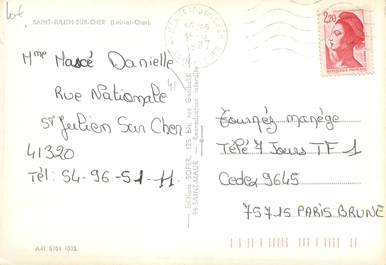 Lot
SAINT-JULIEN-SUR-CHER (Loir-et-Cher)
Mme Massé Danielle
41
Rue Nationale
St Julien Sur Cher
41320
Tél: 54-96-51-11
Editions SOFER, 125 bis, rue Garibaldi
94-SAINT-MAUR - Reproduction interdite
A41 5104 1003
1987
2,20
REPUBLIQUE FRANCAISE
Tournez manège
Télé 7 Jours TF 1
Cedex 9645
75715 PARIS BRUNE